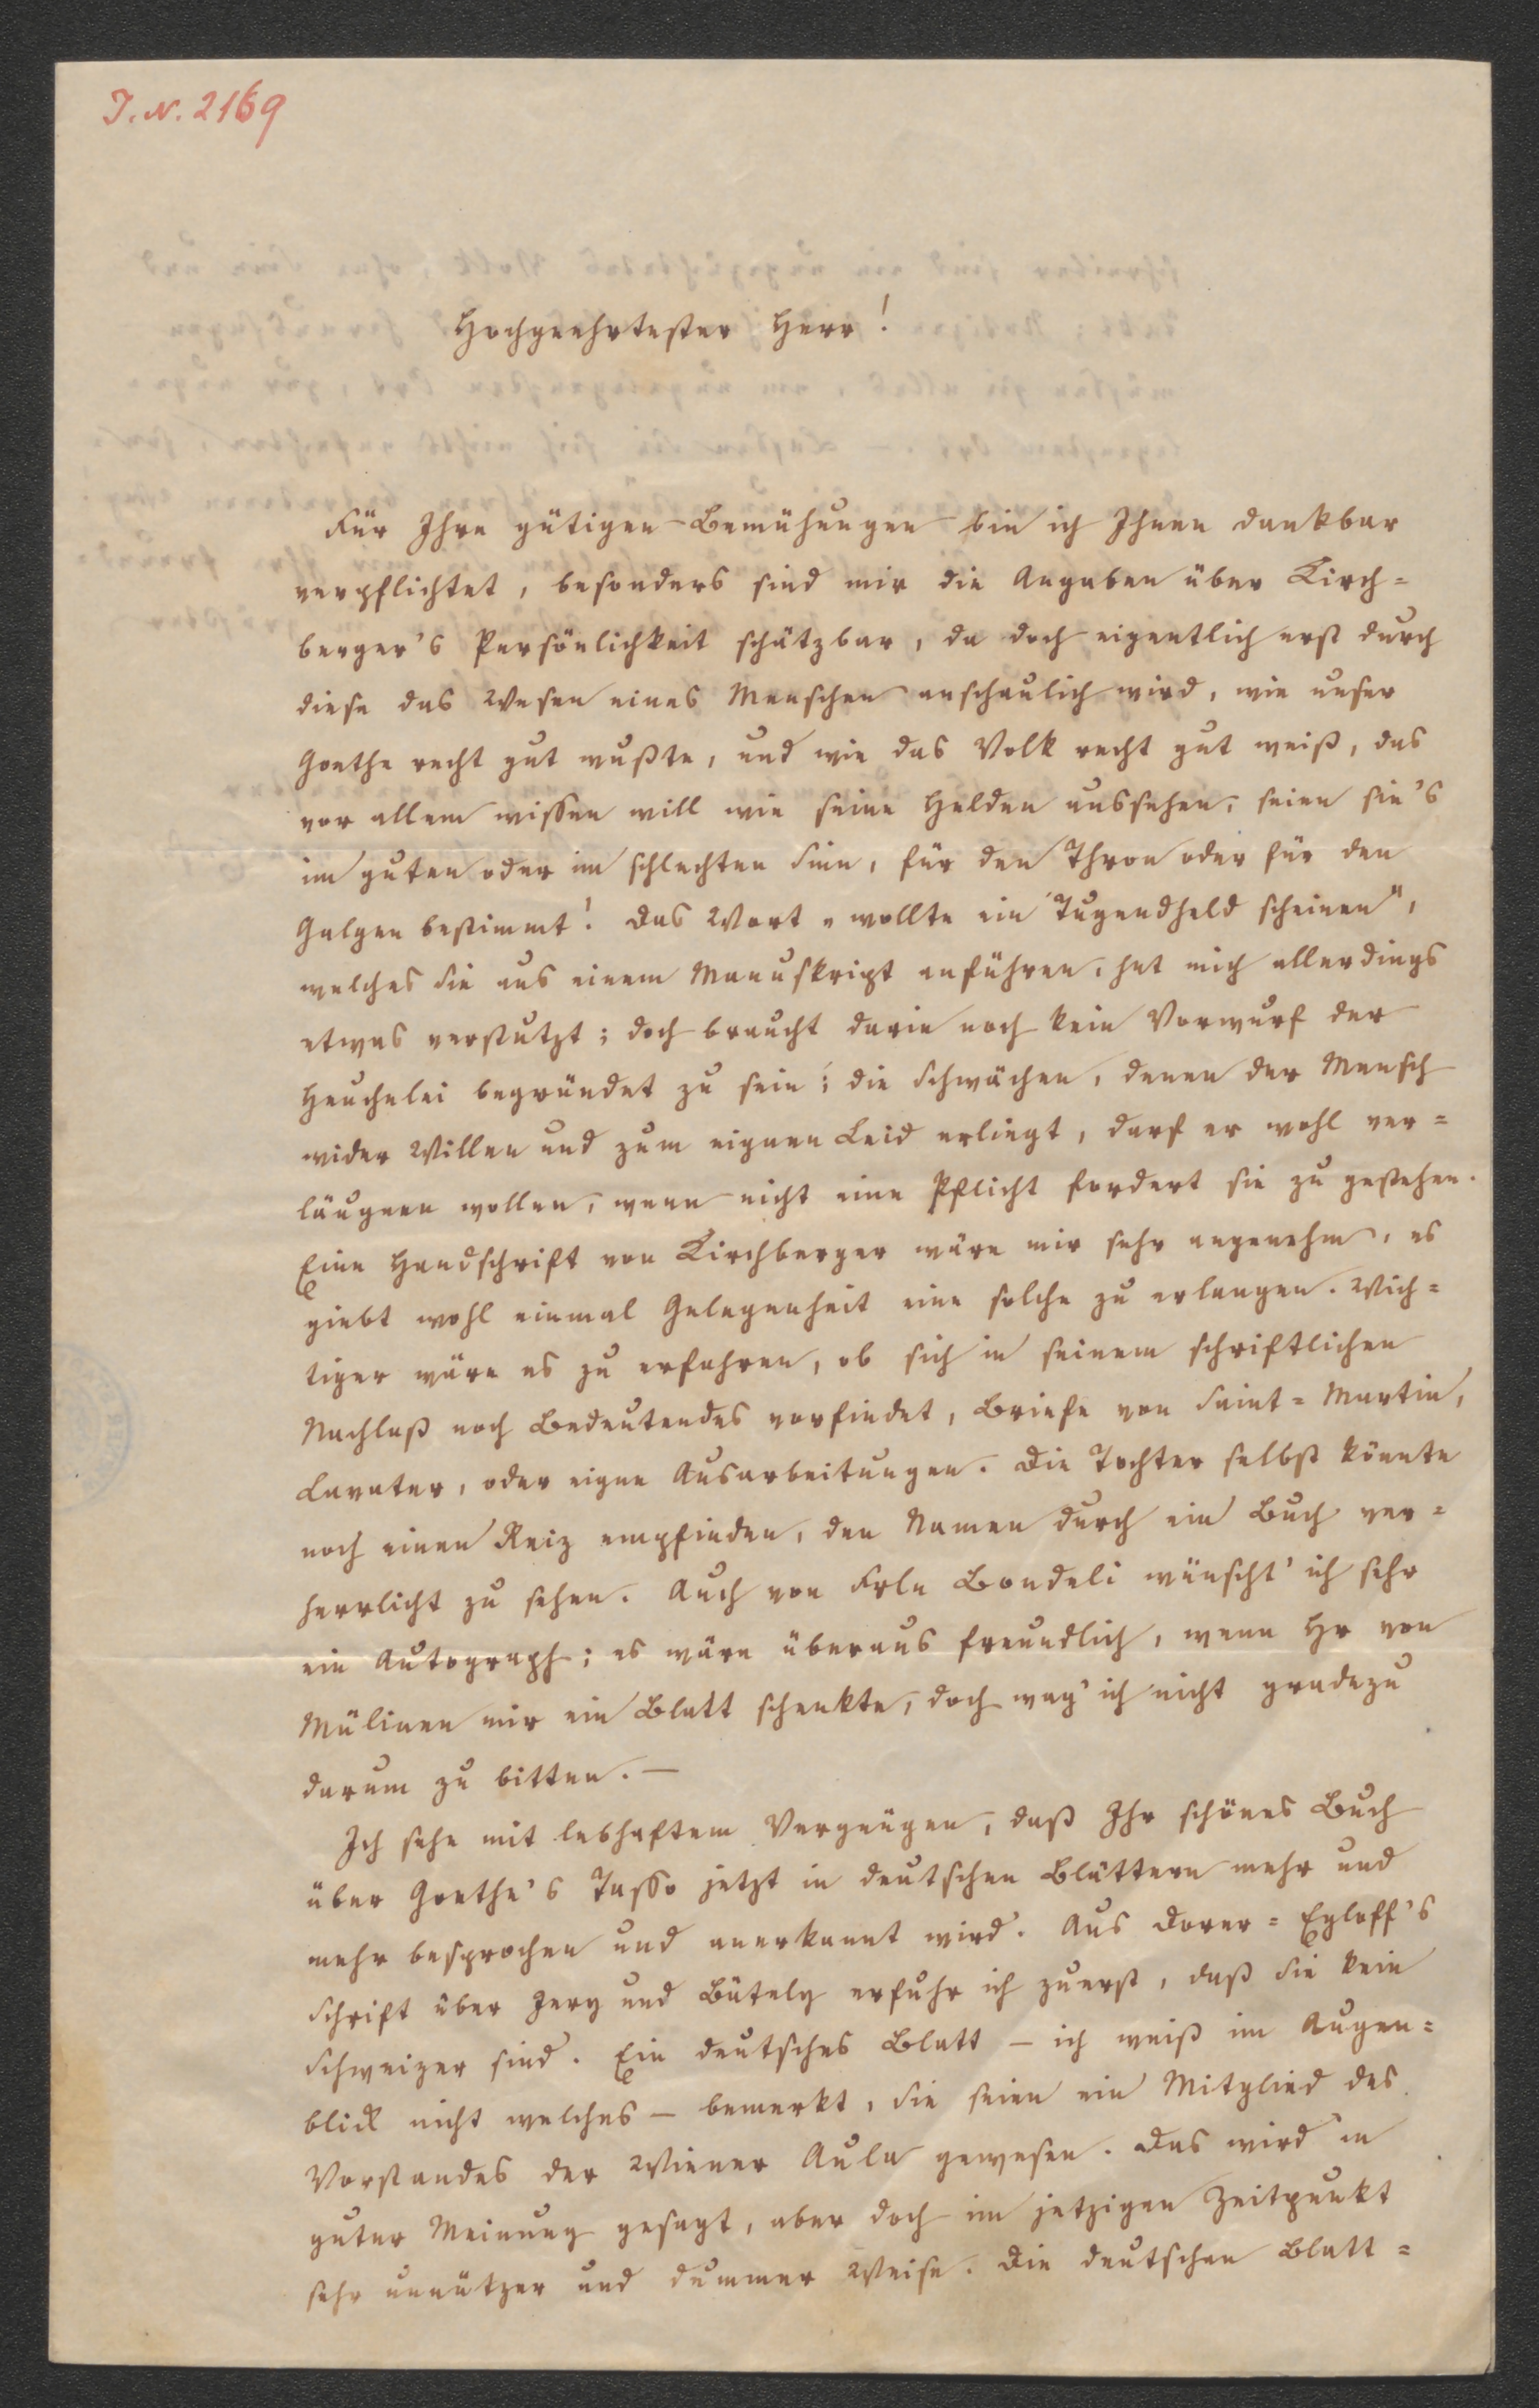 J. N. 2169
Hochgeehrtester Herr!
Für Ihre gütigen Bemühungen bin ich Ihnen dankbar
verpflichtet, besonders sind mir die Angaben über Kirch=
berger's Persönlichkeit schätzbar, da doch eigentlich erst durch
diese das Wesen eines Menschen anschaulich wird, wie unser
Goethe recht gut wußte, und wie das Volk recht gut weiß, das
vor allem wissen will wie seine Helden aussehen, seien sie's
im guten oder im schlechten Sinn, für den Thron oder für den
Galgen bestimmt! Das Wort „wollte ein Tugendheld scheinen",
welches Sie aus einem Manuskript anführen, hat mich allerdings
etwas verstutzt; doch braucht darin noch kein Vorwurf der
Heuchelei begründet zu sein; die Schwächen, denen der Mensch
wider Willen und zum eignen Leid erliegt, darf er wohl ver=
läugnen wollen, wenn nicht eine Pflicht fordert sie zu gestehen.
Eine Handschrift von Kirchberger wäre mir sehr angenehm, es
giebt wohl einmal Gelegenheit eine solche zu erlangen. Wich=
tiger wäre es zu erfahren, ob sich in seinem schriftlichen
Nachlaß noch Bedeutendes vorfindet, Briefe von Saint=Martin,
Lavater, oder eigne Ausarbeitungen. Die Tochter selbst könnte
noch einen Reiz empfinden, den Namen durch ein Buch ver=
herrlicht zu sehen. Auch von Frln Bondeli wünscht' ich sehr
ein Autograph; es wäre überaus freundlich, wenn Hr von
Mülinen mir ein Blatt schenkte, doch wag' ich nicht gradezu
darum zu bitten. —
Ich sehe mit lebhaftem Vergnügen, daß Ihr schönes Buch
über Goethe's Tasso jetzt in deutschen Blättern mehr und
mehr besprochen und anerkannt wird. Aus Dorer=Egloff's
Schrift über Jery und Bätely erfuhr ich zuerst, daß Sie kein
Schweizer sind. Ein deutsches Blatt — ich weiß im Augen=
blick nicht welches — bemerkt, Sie seien ein Mitglied des
Vorstandes der Wiener Aula gewesen. Das wird in
guter Meinung gesagt, aber doch im jetzigen Zeitpunkt
sehr unnützer und dummer Weise. Die deutschen Blatt=